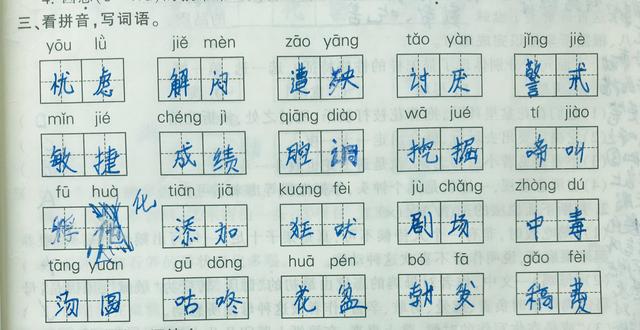 三、看拼音，写词语。
yōu lǜ jiě mèn zāo yāng tǎo yàn jǐng jiè
忧虑 解闷 遭殃 讨厌 警戒
mǐn jié chéng jì qiāng diào wā jué tí jiào
敏捷 成绩 腔调 挖掘 啼叫
fū huà tiān jiā kuáng fèi jù chǎng zhòng dú
孵 化 添加 狂吠 剧场 中毒
tāng yuán gū dōng huā pén bó fā gǎo fèi
汤圆 咕咚 花盆 勃发 稿费